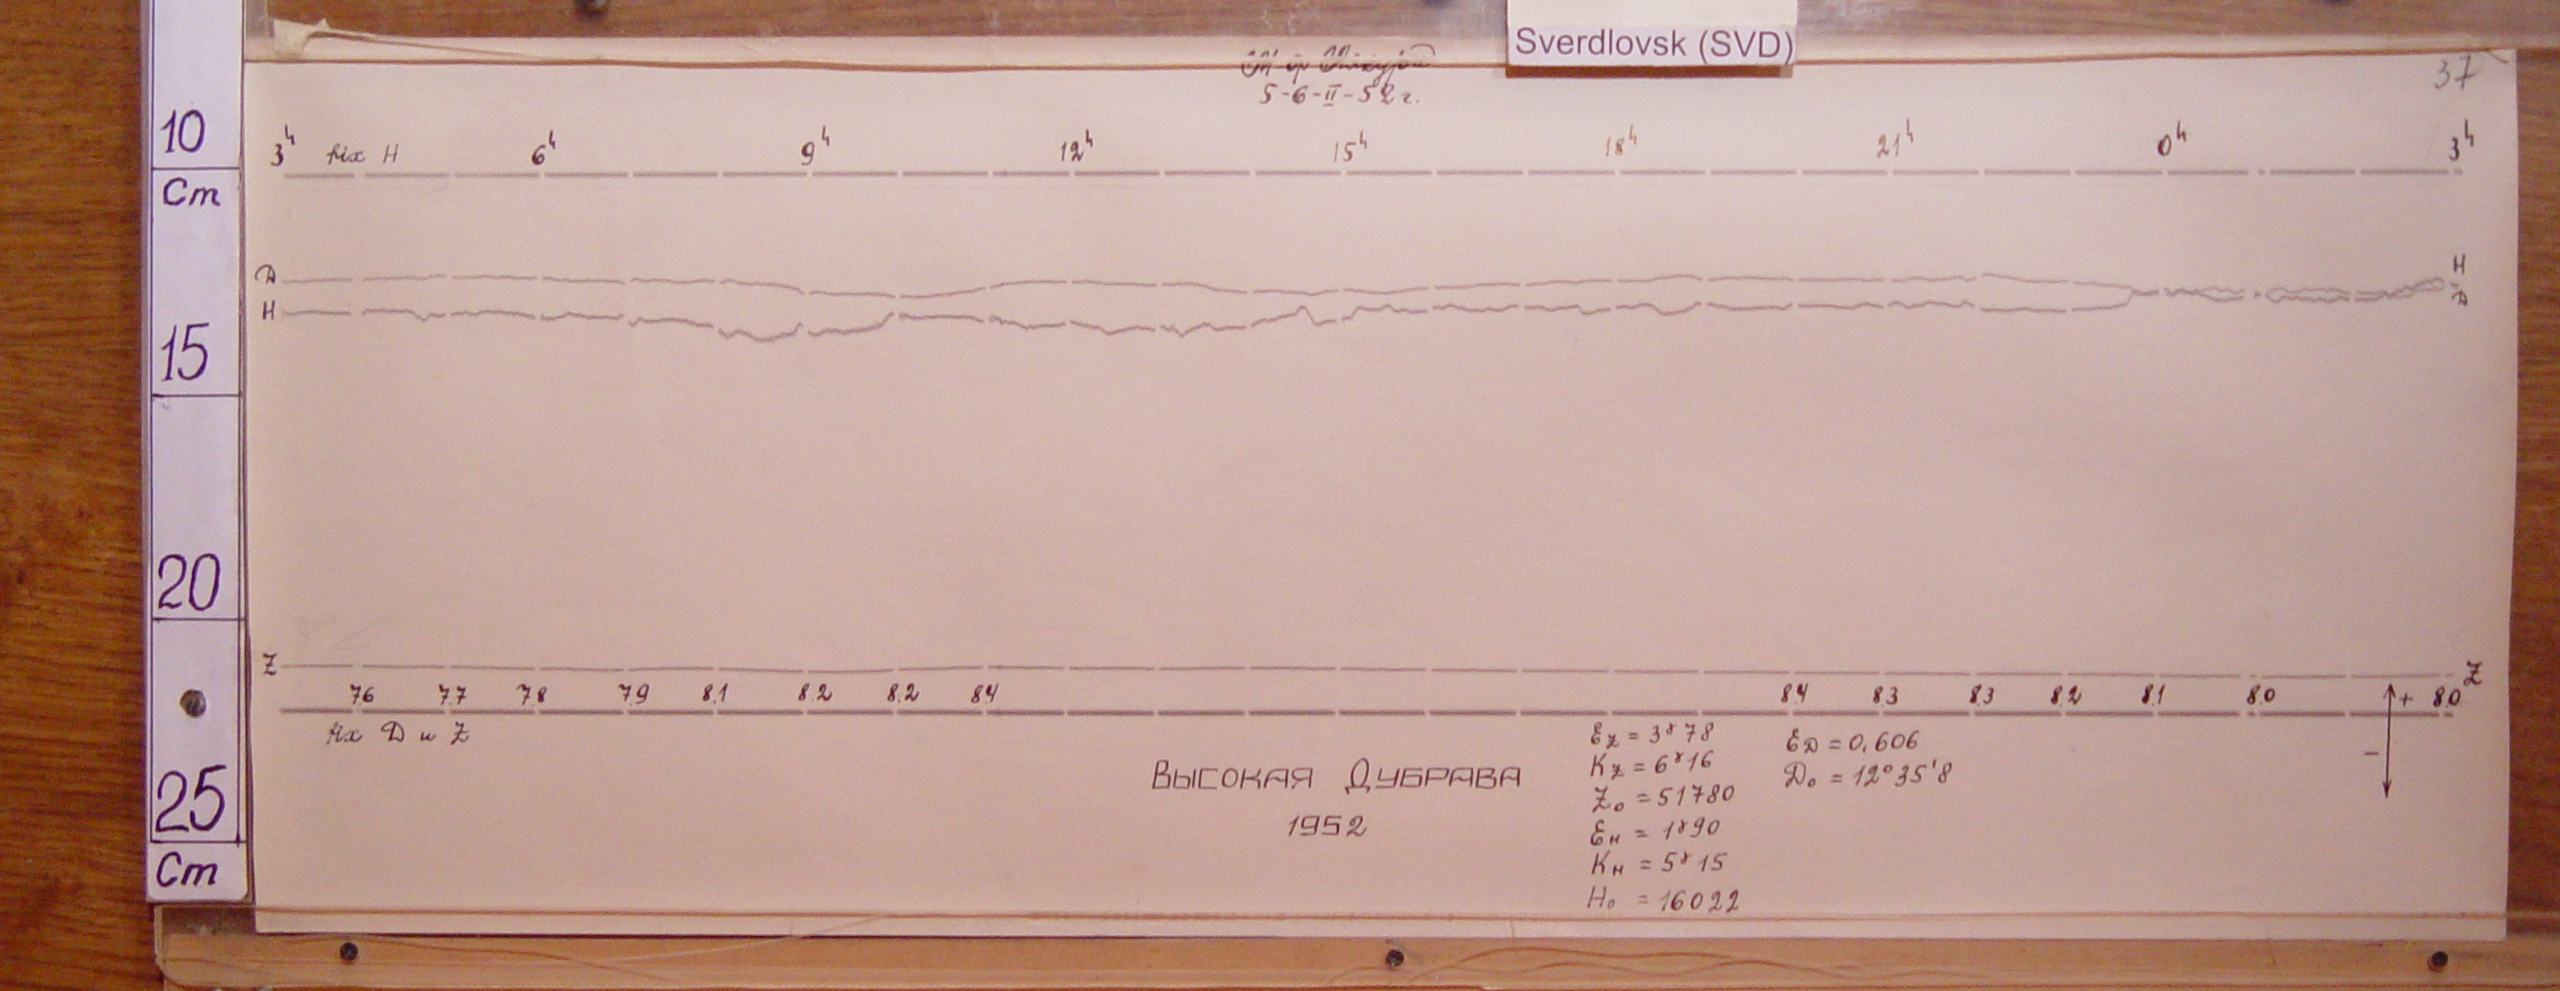 Sverdlovsk (SVD)
5-6-II-52 г.
37
10
Cm
15
20
25
Cm
3ʰ 6ʰ 9ʰ 12ʰ 15ʰ 18ʰ 21ʰ 0ʰ 3ʰ
H
Д H
H Д
Z Z
7.6 7.7 7.8 7.9 8.1 8.2 8.2 8.4 8.4 8.3 8.3 8.2 8.1 8.0 + 8.0
Д и Z
−
Высокая Дубрава
1952
εz = 3ᵞ78
Kz = 6ᵞ16
Z₀ = 51780
εн = 1ᵞ90
Kн = 5ᵞ15
H₀ = 16022
εД = 0,606
Д₀ = 12°35'8